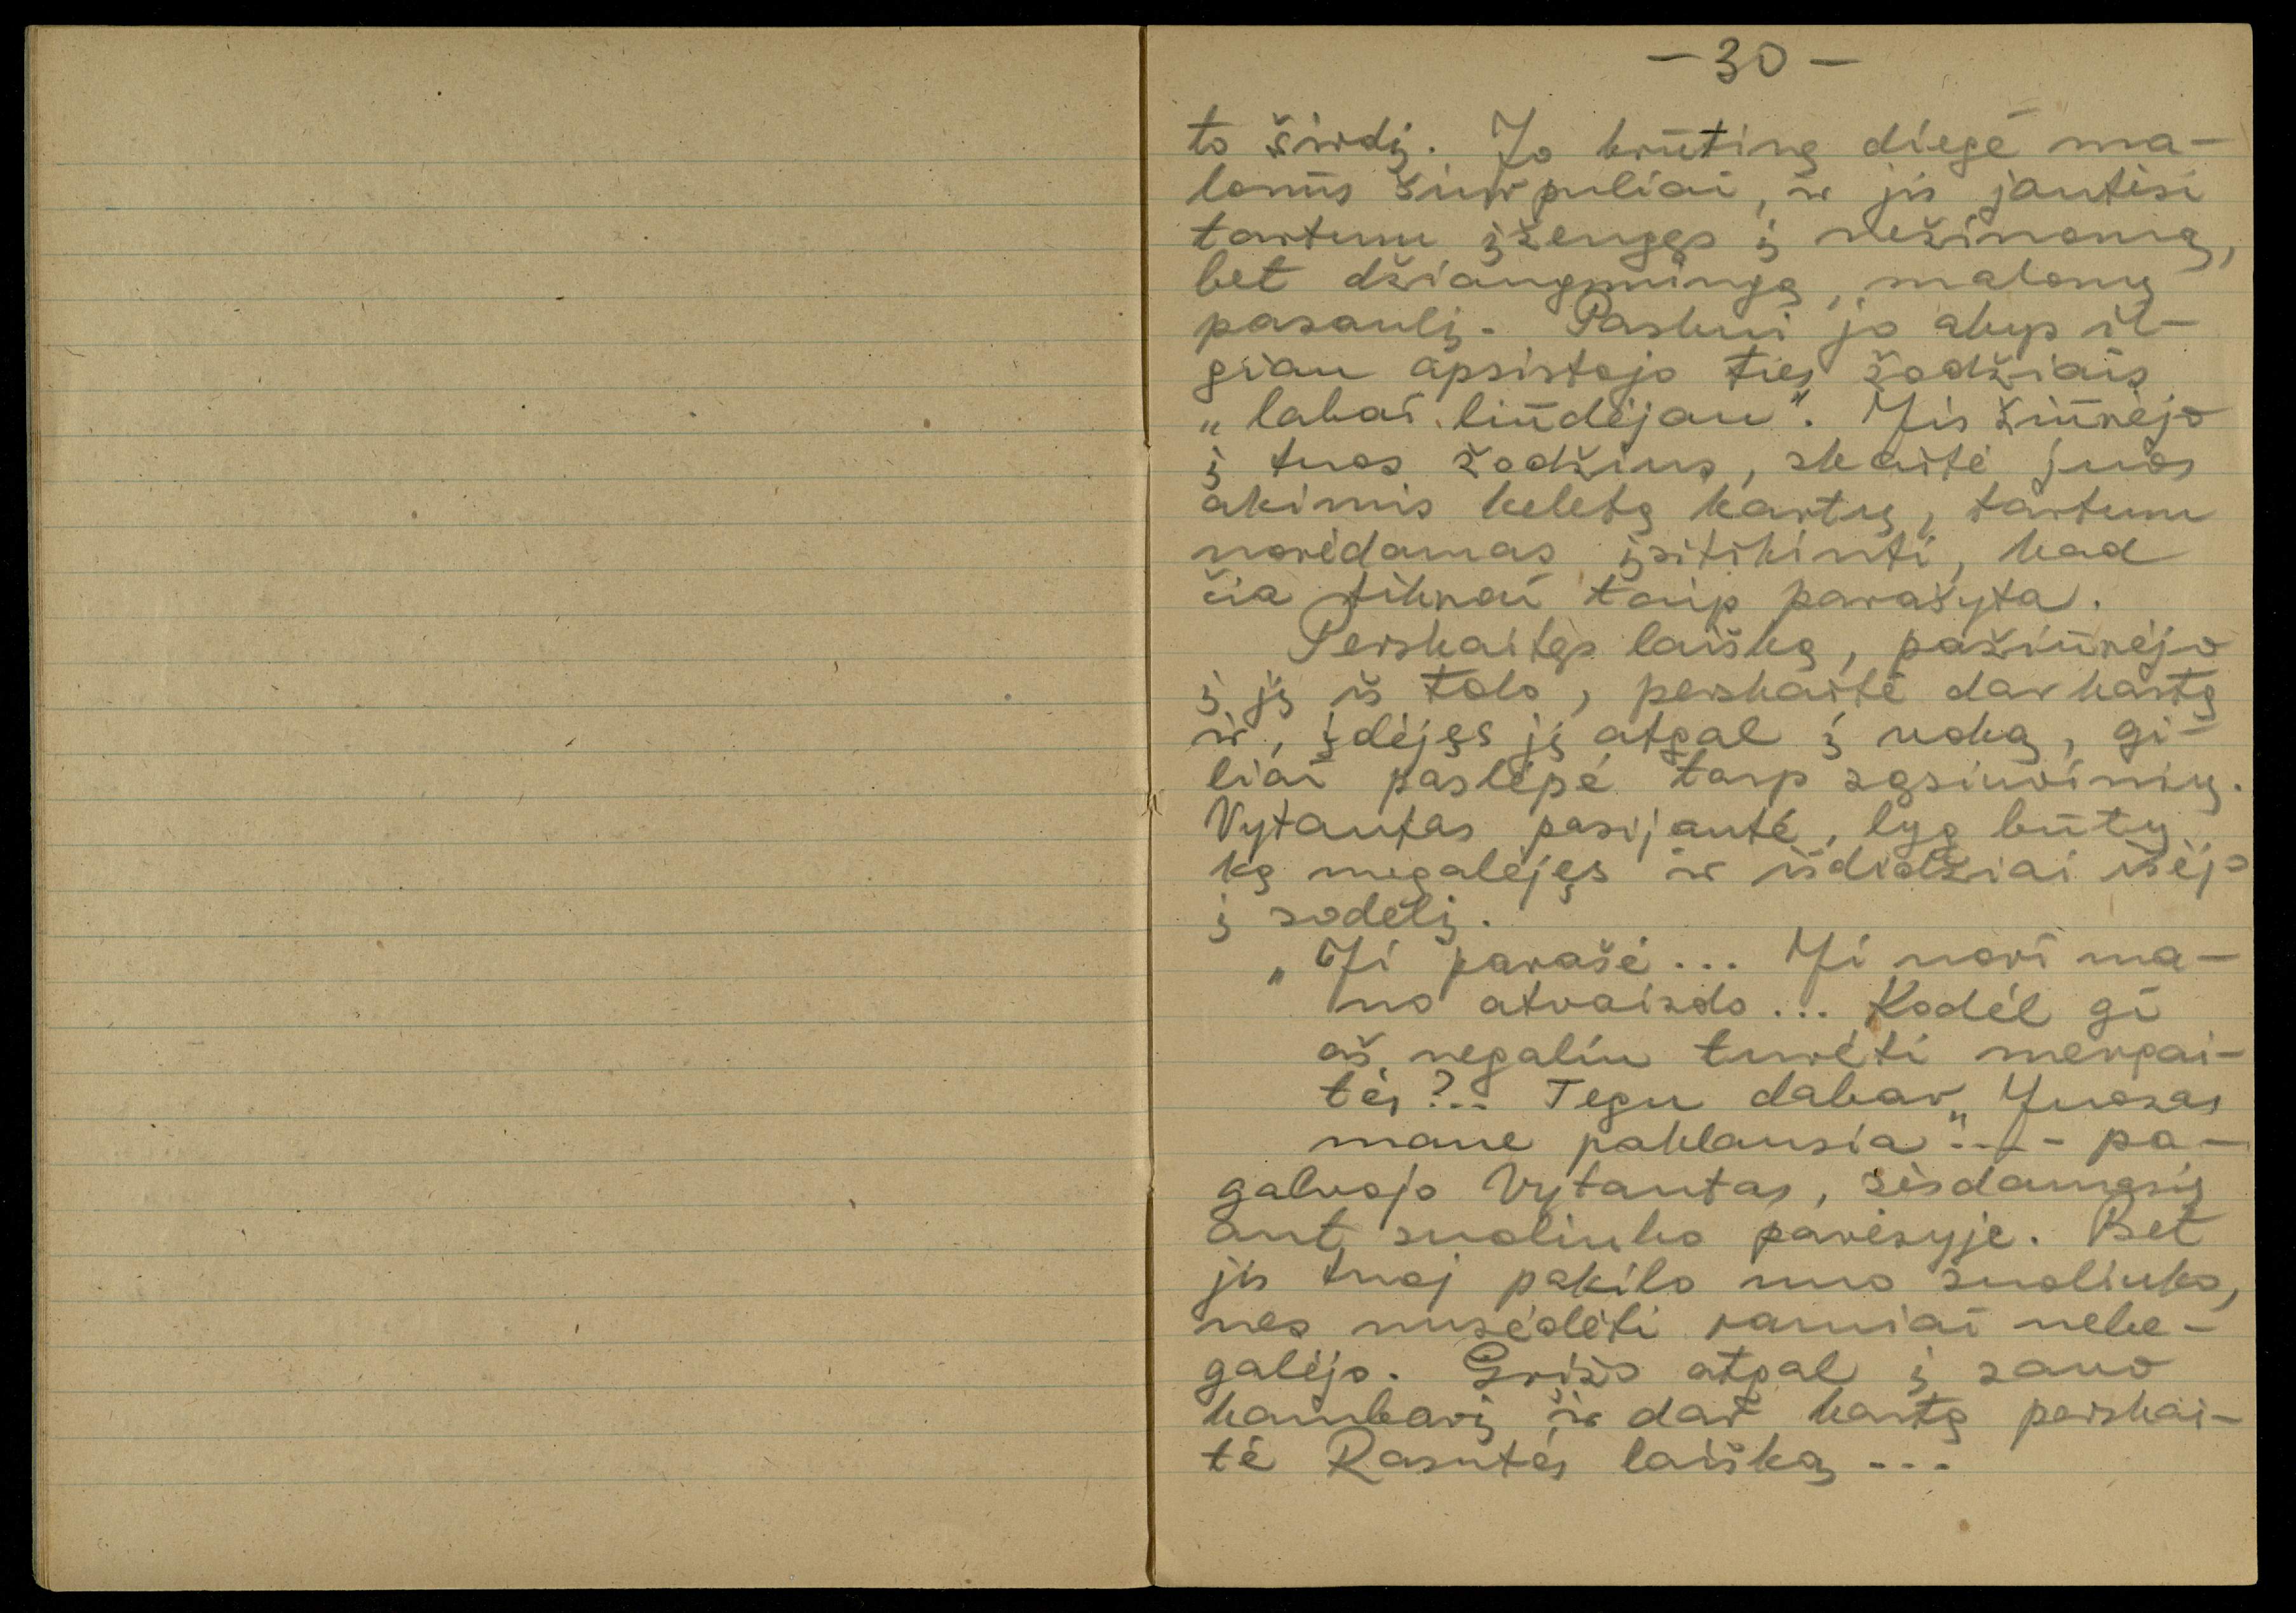 – 30 –
to širdį. Jo krūtinę diegė ma-
lonūs šiurpuliai, ir jis jautėsi
tartum įžengęs į nežinomą,
bet džiaugsmingą, malonų
pasaulį. Paskui jo akys il-
giau apsistojo ties žodžiais
„labai liūdėjau". Jis žiūrėjo
į tuos žodžius, skaitė juos
akimis keletą kartų, tartum
norėdamas įsitikinti, kad
čia tikrai taip parašyta.
Perskaitęs laišką, pažiūrėjo
į jį iš tolo, perskaitė dar kartą
ir, įdėjęs jį atgal į voką, gi-
liai paslėpė tarp sąsiuvinių.
Vytautas pasijautė, lyg būtų
ką nugalėjęs ir išdidžiai išėjo
į sodelį.
„Ji parašė... Ji nori ma-
no atvaizdo... Kodėl gi
aš negaliu turėti mergai-
tės?.. Tegu dabar „Juozas
mane paklausia"... - pa-
galvojo Vytautas, sėsdamasis
ant suoliuko pavėsyje. Bet
jis tuoj pakilo nuo suoliuko,
nes nusėdėti ramiai nebe-
galėjo. Grįžo atgal į savo
kambarį ir dar kartą perskai-
tė Rasutės laišką...